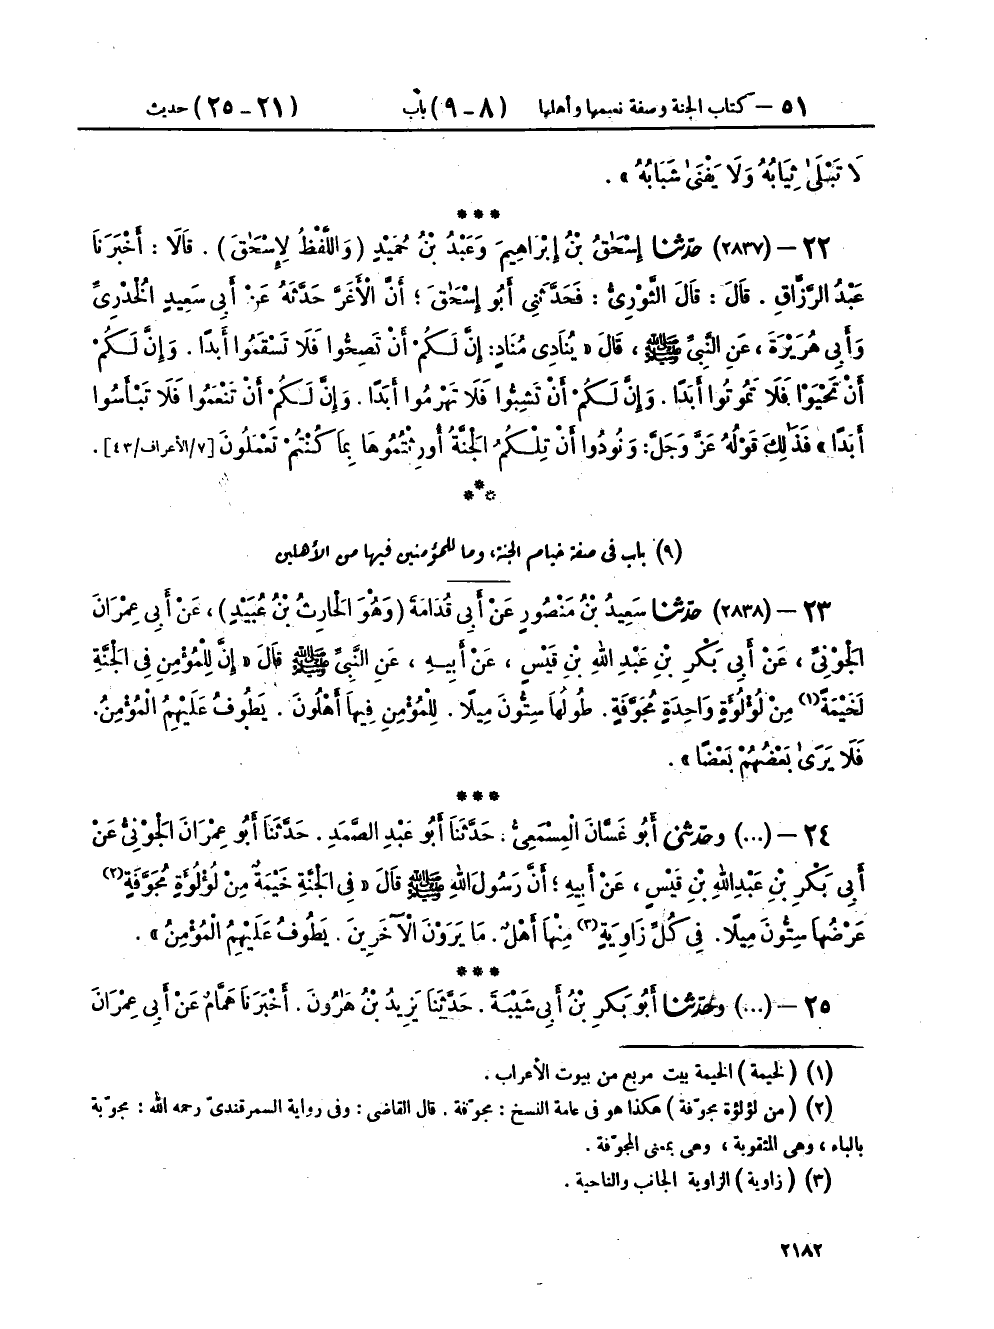 ٥١ – كتاب الجنة وصفة نعيمها وأهلها (٨ – ٩) باب (٢١ – ٢٥) حديث
لَا تَبْلَىٰ ثِيَابُهُ وَلَا يَفْنَىٰ شَبَابُهُ » .
***
٢٢ – (٢٨٣٧) حَدَّثَنَا إِسْحَٰقُ بْنُ إِبْرَاهِيمَ وَعَبْدُ بْنُ حُمَيْدٍ ( وَاللَّفْظُ لِإِسْحَٰقَ ) . قَالَا : أَخْبَرَنَا
عَبْدُ الرَّزَّاقِ . قَالَ : قَالَ الثَّوْرِىُّ : فَحَدَّثَنِى أَبُو إِسْحَٰقَ ؛ أَنَّ الْأَغَرَّ حَدَّثَهُ عَنْ أَبِى سَعِيدٍ الْخُدْرِىِّ
وَأَبِى هُرَيْرَةَ ، عَنِ النَّبِىِّ ﷺ ، قَالَ « يُنَادِى مُنَادٍ : إِنَّ لَكُمْ أَنْ تَصِحُّوا فَلَا تَسْقَمُوا أَبَدًا . وَإِنَّ لَكُمْ
أَنْ تَحْيَوْا فَلَا تَمُوتُوا أَبَدًا . وَإِنَّ لَكُمْ أَنْ تَشِبُّوا فَلَا تَهْرَمُوا أَبَدًا . وَإِنَّ لَكُمْ أَنْ تَنْعَمُوا فَلَا تَبْأَسُوا
أَبَدًا » فَذَٰلِكَ قَوْلُهُ عَزَّ وَجَلَّ : وَنُودُوا أَنْ تِلْكُمُ الْجَنَّةُ أُورِثْتُمُوهَا بِمَا كُنْتُمْ تَعْمَلُونَ [٧/الأعراف/٤٣] .
***
(٩) باب فى صفة خيام الجنة، وما للمؤمنين فيها من الأهلين
٢٣ – (٢٨٣٨) حَدَّثَنَا سَعِيدُ بْنُ مَنْصُورٍ عَنْ أَبِى قُدَامَةَ ( وَهُوَ الْحَارِثُ بْنُ عُبَيْدٍ ) ، عَنْ أَبِى عِمْرَانَ
الْجَوْنِىِّ ، عَنْ أَبِى بَكْرِ بْنِ عَبْدِ اللهِ بْنِ قَيْسٍ ، عَنْ أَبِيهِ ، عَنِ النَّبِىِّ ﷺ قَالَ « إِنَّ لِلْمُؤْمِنِ فِى الْجَنَّةِ
لَخَيْمَةً(١) مِنْ لُؤْلُؤَةٍ وَاحِدَةٍ مُجَوَّفَةٍ . طُولُهَا سِتُّونَ مِيلًا . لِلْمُؤْمِنِ فِيهَا أَهْلُونَ . يَطُوفُ عَلَيْهِمُ الْمُؤْمِنُ.
فَلَا يَرَىٰ بَعْضُهُمْ بَعْضًا » .
***
٢٤ – (...) وَحَدَّثَنِى أَبُو غَسَّانَ الْمِسْمَعِىُّ . حَدَّثَنَا أَبُو عَبْدِ الصَّمَدِ . حَدَّثَنَا أَبُو عِمْرَانَ الْجَوْنِىُّ عَنْ
أَبِى بَكْرِ بْنِ عَبْدِ اللهِ بْنِ قَيْسٍ ، عَنْ أَبِيهِ ؛ أَنَّ رَسُولَ اللهِ ﷺ قَالَ « فِى الْجَنَّةِ خَيْمَةٌ مِنْ لُؤْلُؤَةٍ مُجَوَّفَةٍ(٢)
عَرْضُهَا سِتُّونَ مِيلًا. فِى كُلِّ زَاوِيَةٍ(٣) مِنْهَا أَهْلٌ. مَا يَرَوْنَ الْآخَرِينَ . يَطُوفُ عَلَيْهِمُ الْمُؤْمِنُ » .
***
٢٥ – (...) وَحَدَّثَنَا أَبُو بَكْرِ بْنُ أَبِى شَيْبَةَ . حَدَّثَنَا يَزِيدُ بْنُ هَٰرُونَ . أَخْبَرَنَا هَمَّامٌ عَنْ أَبِى عِمْرَانَ
(١) ( لخيمة ) الخيمة بيت مربع من بيوت الأعراب .
(٢) ( من لؤلؤة مجوّفة ) هكذا هو فى عامة النسخ : مجوّفة . قال القاضى : وفى رواية السمرقندىّ رحمه الله : مجوّبة
بالباء ، وهى المثقوبة ، وهى بمعنى المجوّفة .
(٣) ( زاوية ) الزاوية الجانب والناحية .
٢١٨٢